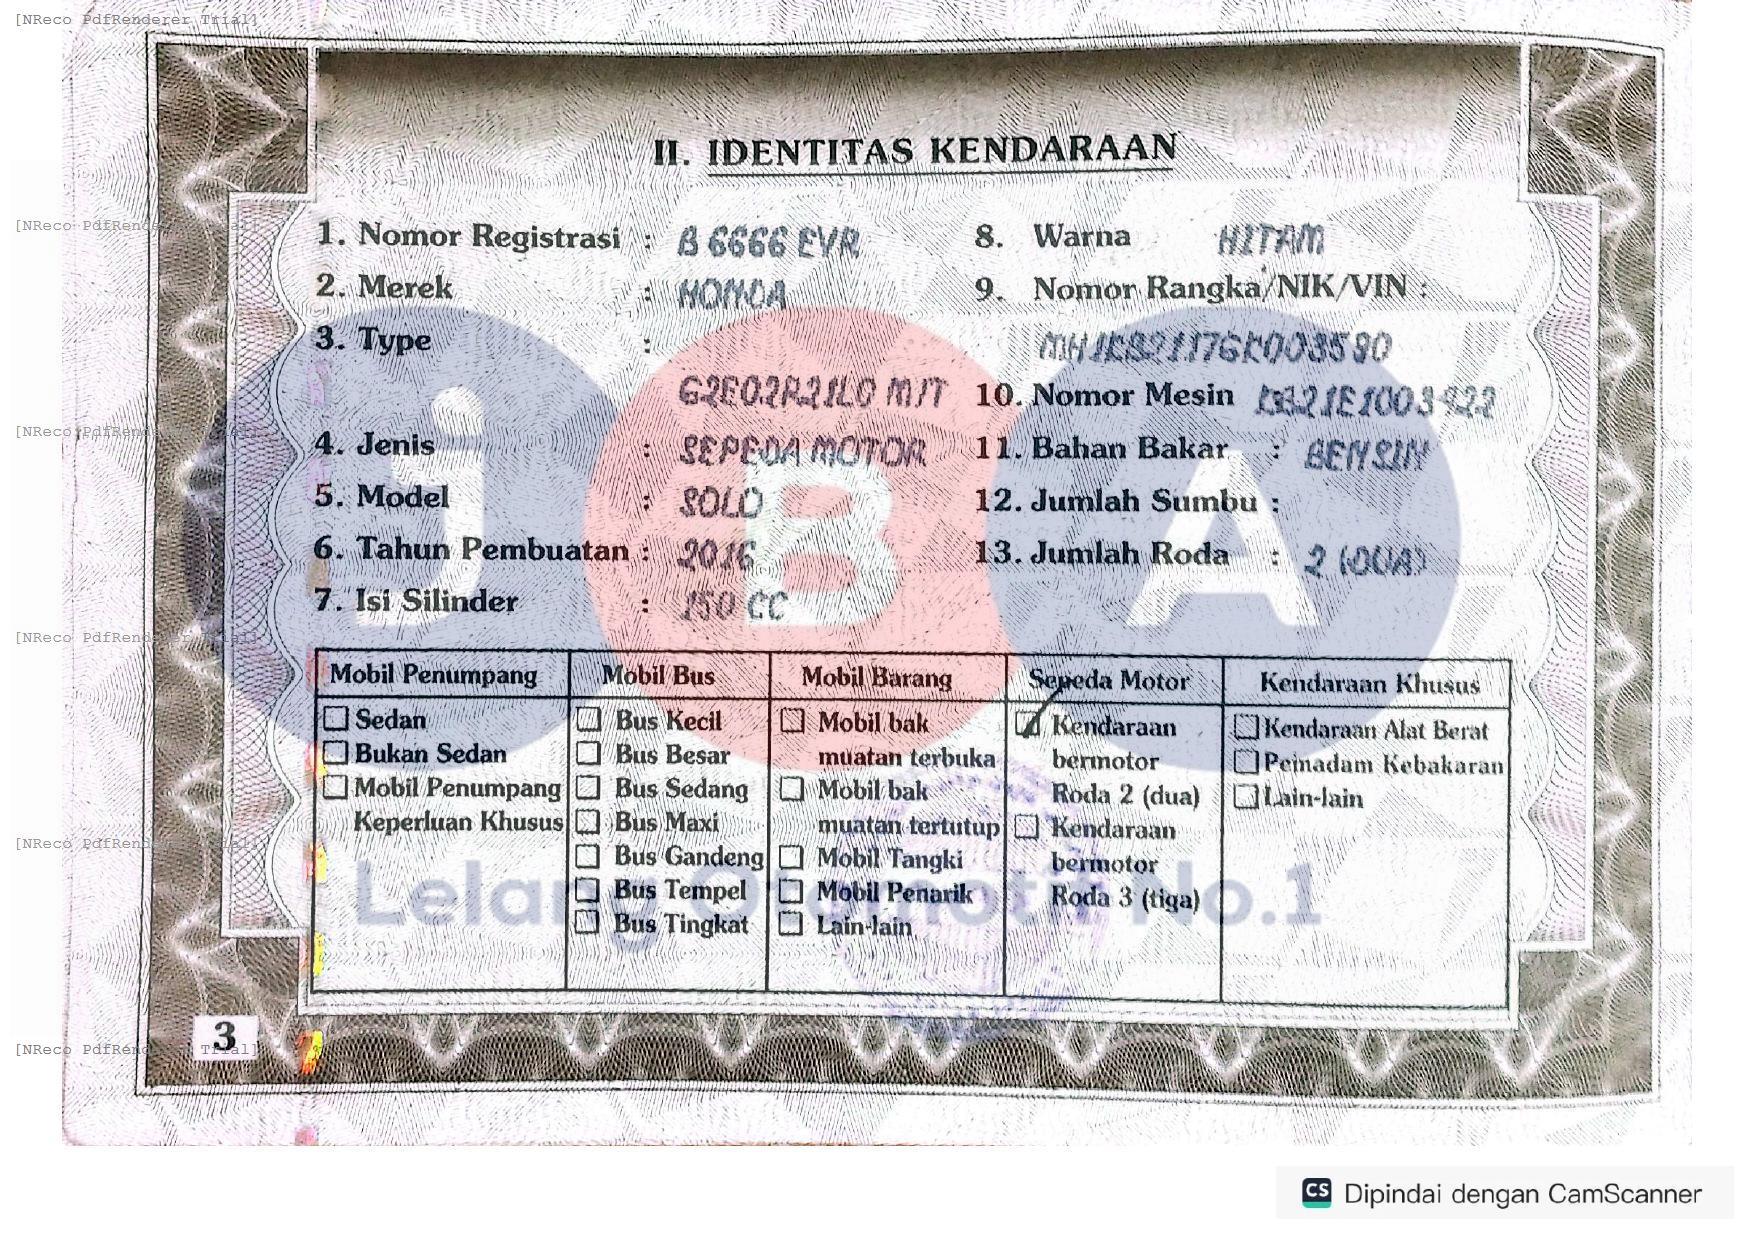 [NReco PdfRenderer Trial]
II. IDENTITAS KENDARAAN
[NReco PdfRenderer Trial]
1. Nomor Registrasi : B 6666 EVR
2. Merek : HONDA
3. Type :
G2E02R21L0 M/T
[NReco PdfRenderer Trial]
4. Jenis : SEPEDA MOTOR
5. Model : SOLO
6. Tahun Pembuatan : 2016
7. Isi Silinder : 150 CC
8. Warna HITAM
9. Nomor Rangka/NIK/VIN :
10. Nomor Mesin
11. Bahan Bakar : BENSIN
12. Jumlah Sumbu :
13. Jumlah Roda : 2 (DUA)
jBA
[NReco PdfRenderer Trial]
Mobil Penumpang
Sedan
Bukan Sedan
Mobil Penumpang
Keperluan Khusus
Mobil Bus
Bus Kecil
Bus Besar
Bus Sedang
Bus Maxi
Bus Gandeng
Bus Tempel
Bus Tingkat
Mobil Barang
Mobil bak
muatan terbuka
Mobil bak
muatan tertutup
Mobil Tangki
Mobil Penarik
Lain-lain
Sepeda Motor
Kendaraan
bermotor
Roda 2 (dua)
Kendaraan
bermotor
Roda 3 (tiga)
Kendaraan Khusus
Kendaraan Alat Berat
Pemadam Kebakaran
Lain-lain
[NReco PdfRenderer Trial]
Lelang Otomotif No.1
3
[NReco PdfRenderer Trial]
CS Dipindai dengan CamScanner